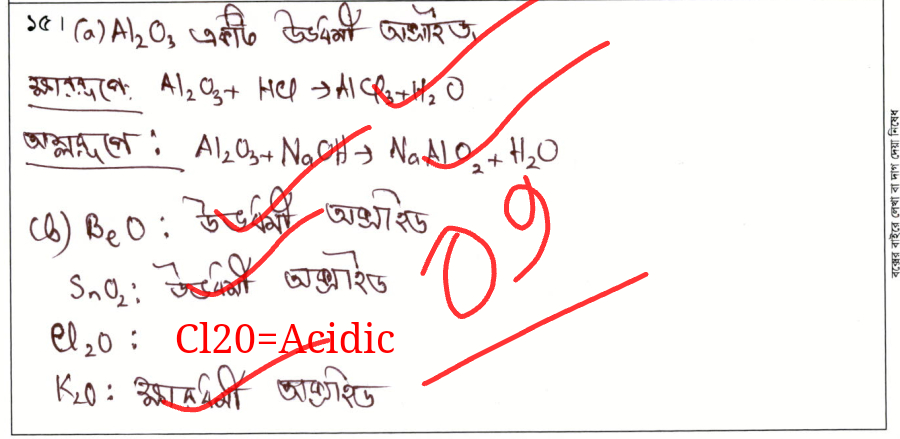 ১৫। (a) Al₂O₃ একটি উভধর্মী অক্সাইড
ক্ষাররূপে: Al₂O₃ + HCl → AlCl₃ + H₂O
অম্লরূপে: Al₂O₃ + NaOH → NaAlO₂ + H₂O
(b) BeO: উভধর্মী অক্সাইড
SnO₂: উভধর্মী অক্সাইড
Cl₂O: Cl20=Acidic
K₂O: ক্ষারধর্মী অক্সাইড
বক্সের বাইরে লেখা বা দাগ দেয়া নিষেধ